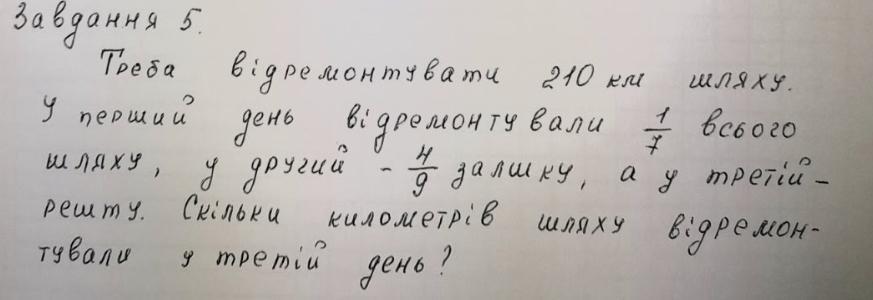 Завдання 5.
Треба відремонтувати 210 км шляху.
У перший день відремонтували 1/7 всього
шляху, у другий - 4/9 залшку, а у третій -
решту. Скільки километрів шляху відремон-
тували у третій день?